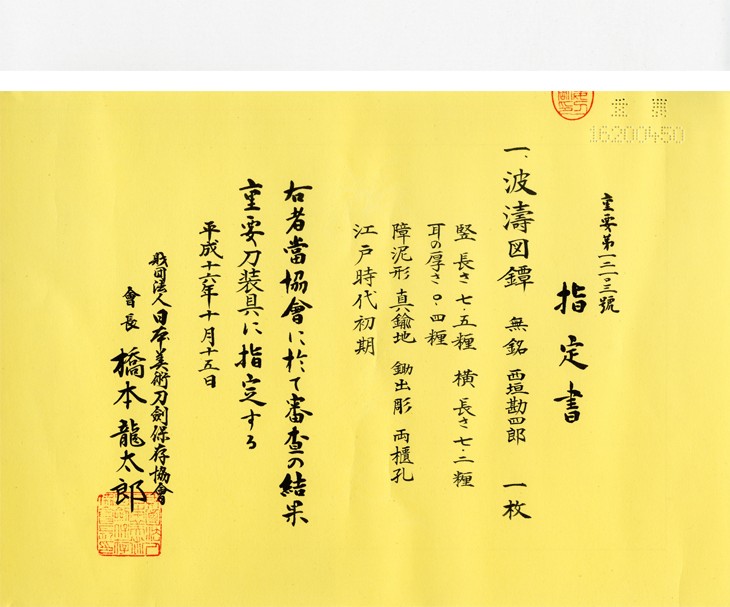 重要第一二一三號
指定書
一、波濤図鐔 無銘 西垣勘四郎 一枚
竪 長さ 七・五糎 横 長さ 七・二糎
耳の厚さ 〇・四糎
障泥形 真鍮地 鋤出彫 両櫃孔
江戸時代初期
右者當協會に於て審査の結果
重要刀装具に指定する
平成十六年十月十五日
財団法人日本美術刀劍保存協會
會長 橋本龍太郎
16200450